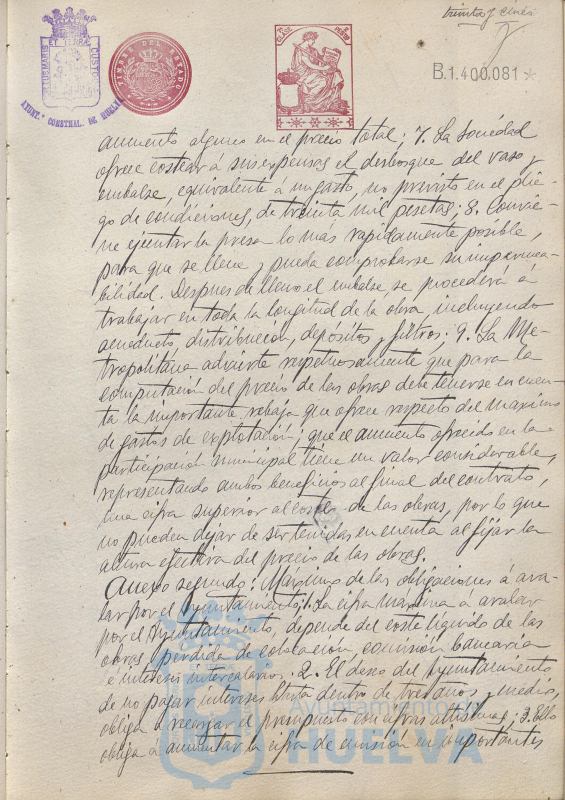 treinta y cinco
PORTUS MARIS
ET TERRAE CUSTODIA
AYUNT.º CONSTNAL. DE HUELVA
TIMBRE DEL ESTADO
B.1.400.081*
aumento alguno en el precio total; 7. La Sociedad
ofrece costear á sus expensas el desbosque del vaso y
embalse, equivalente a un gasto, no previsto en el plie-
go de condiciones, de treinta mil pesetas; 8. Convie-
ne ejecutar la presa lo más rapidamente posible,
para que se llene y pueda comprobarse su impermea-
bilidad. Despues de lleno el embalse, se procederá á
trabajar en toda la longitud de la obra, incluyendo
acueducto, distribución, depósitos y filtros; 9. La Me-
tropolitana advierte respetuosamente que para la
computación del precio de las obras debe tenerse en cuen-
ta la importante rebaja que ofrece respecto del maximo
de gastos de explotación; que el aumento ofrecido en la
participación municipal tiene un valor considerable,
representando ambos beneficios al final del contrato,
una cifra superior al coste de las obras, por lo que
no pueden dejar de ser tenidas en cuenta al fijar la
altura efectiva del precio de las obras.
Anexo segundo: Máximo de las obligaciones á ava-
lar por el Ayuntamiento. 1. La cifra maxima á avalar
por el Ayuntamiento, depende del coste liquido de las
obras, perdida de colocación, comisión bancaria
é intereses intercalarios. 2. El deseo del Ayuntamiento
de no pagar intereses hasta dentro de tres años y medio,
obliga a recargar el presupuesto con cifras altisimas; 3. Ello
obliga á aumentar la cifra de emisión en importantes
Ayuntamiento de
HUELVA